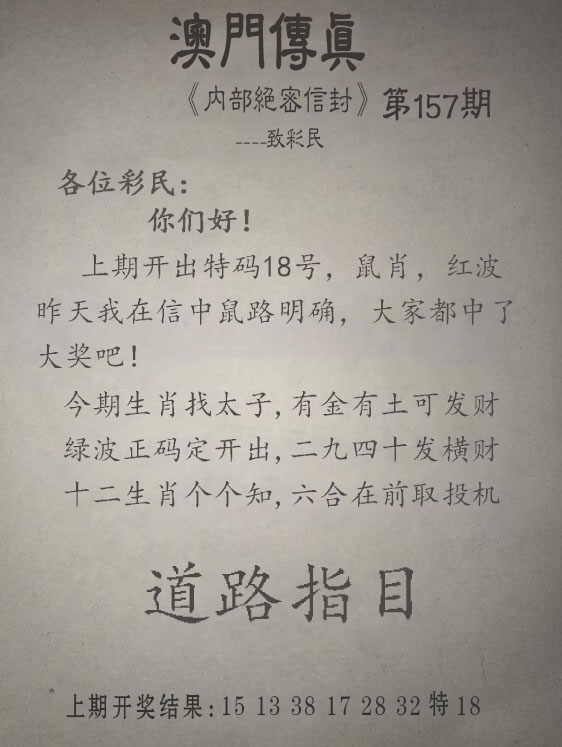 澳門傳眞
《内部絕密信封》第157期
----致彩民
各位彩民：
你们好！
上期开出特码18号，鼠肖，红波
昨天我在信中鼠路明确，大家都中了
大奖吧！
今期生肖找太子,有金有土可发财
绿波正码定开出,二九四十发横财
十二生肖个个知,六合在前取投机
道路指目
上期开奖结果:15 13 38 17 28 32特18